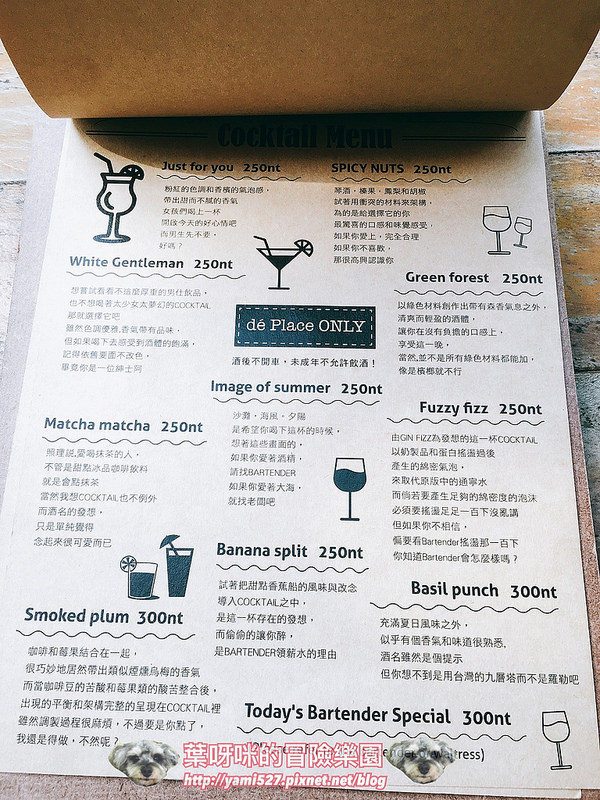 Cocktail Menu
Just for you 250nt
粉紅的色調和香檳的氣泡感，
帶出甜而不膩的香氣
女孩們喝上一杯
開啟今天的好心情吧
而男生先不要，
好嗎？
SPICY NUTS 250nt
琴酒，榛果，鳳梨和胡椒
試著用衝突的材料來架構，
為的是給選擇它的你
最驚喜的口感和味覺感受，
如果你愛上，完全合理
如果你不喜歡，
那很高興認識你
White Gentleman 250nt
想嘗試看看不這麼厚重的男仕飲品，
也不想喝著太少女太夢幻的COCKTAIL
那就選擇它吧
雖然色調優雅，香氣帶有品味，
但如果喝下去感受到酒體的飽滿，
記得依舊要面不改色，
畢竟你是一位紳士阿
Green forest 250nt
以綠色材料創作出帶有森香氣息之外，
清爽而輕盈的酒體，
讓你在沒有負擔的口感上，
享受這一晚，
當然，並不是所有綠色材料都能加，
像是檳榔就不行
dé Place ONLY
酒後不開車，未成年不允許飲酒！
Image of summer 250nt
沙灘，海風，夕陽
是希望你喝下這杯的時候，
想著這些畫面的，
如果你愛著酒精，
請找BARTENDER
如果你愛著大海，
就找老闆吧
Matcha matcha 250nt
照理說，愛喝抹茶的人，
不管是甜點冰品咖啡飲料
就是會點抹茶
當然我想COCKTAIL也不例外
而酒名的發想，
只是單純覺得
念起來很可愛而已
Fuzzy fizz 250nt
由GIN FIZZ為發想的這一杯COCKTAIL
以奶製品和蛋白搖盪過後
產生的綿密氣泡，
來取代原版中的通寧水
而倘若要產生足夠的綿密度的泡沫
必須要搖盪足足一百下沒亂講
但如果你不相信，
偏要看Bartender搖盪那一百下
你知道Bartender會怎麼樣嗎？
Banana split 250nt
試著把甜點香蕉船的風味與改念
導入COCKTAIL之中，
是這一杯存在的發想，
而偷偷的讓你醉，
是BARTENDER領薪水的理由
Basil punch 300nt
充滿夏日風味之外，
似乎有個香氣和味道很熟悉，
酒名雖然是個提示
但你想不到是用台灣的九層塔而不是羅勒吧
Smoked plum 300nt
咖啡和莓果結合在一起，
很巧妙地居然帶出類似煙燻烏梅的香氣
而當咖啡豆的苦酸和莓果類的酸苦整合後，
出現的平衡和架構完整的呈現在COCKTAIL裡
雖然調製過程很麻煩，不過要是你點了，
我還是得做，不然呢？
Today's Bartender Special 300nt
葉呀咪的冒險樂園
http://yami527.pixnet.net/blog